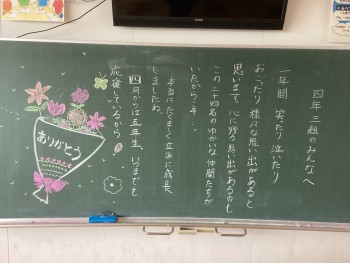 四年三組のみんなへ
一年間 笑たり泣いたり
おこったり 様々な思い出があると
思います。心に残る思い出があるのも
この二十四名のゆかいな仲間たちが
いたからこそ…
本当にたくましく立派に成長
しましたね。
四月からは五年生、いつまでも
応援しているから!
ありがとう